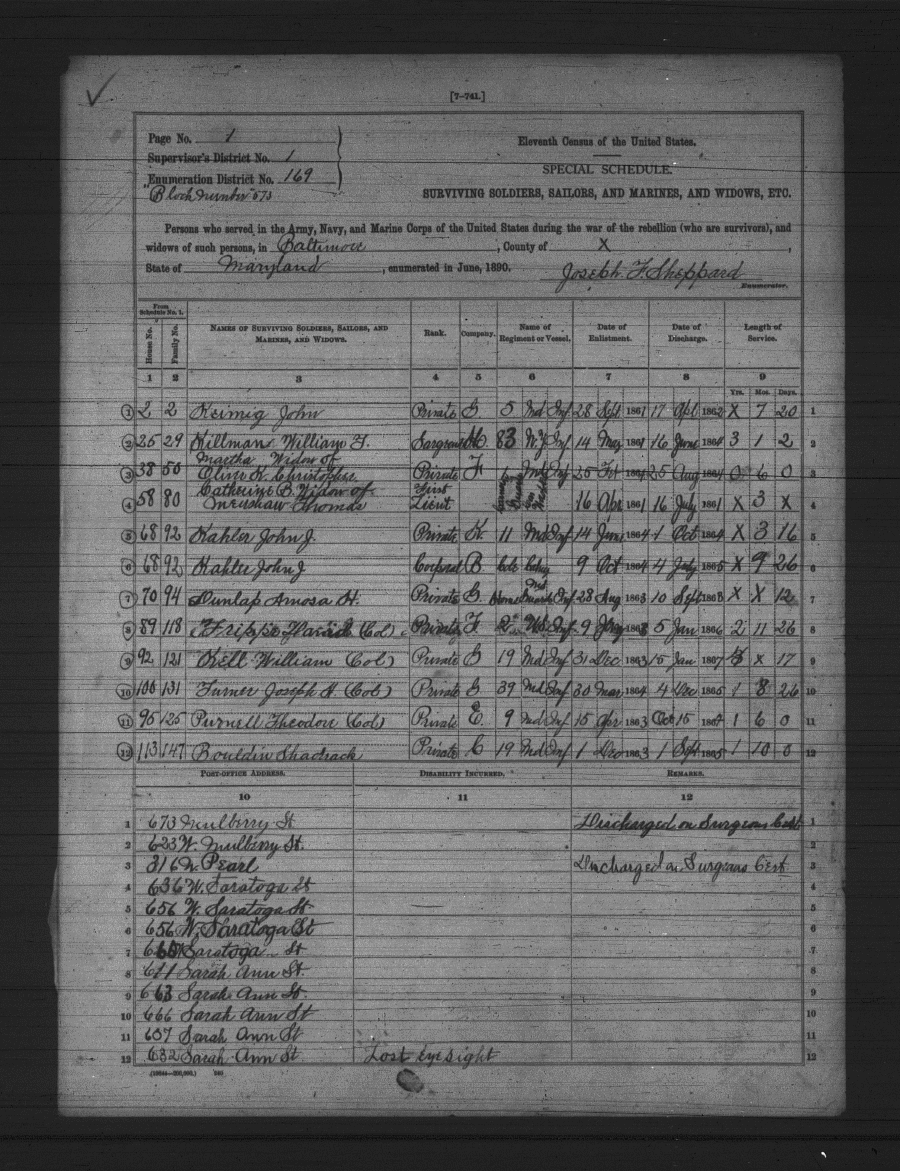 [7-741.]
Page No. 1
Supervisor's District No. 1
Enumeration District No. 169
Block number 573
Eleventh Census of the United States.
SPECIAL SCHEDULE.
SURVIVING SOLDIERS, SAILORS, AND MARINES, AND WIDOWS, ETC.
Persons who served in the Army, Navy, and Marine Corps of the United States during the war of the rebellion (who are survivors), and
widows of such persons, in Baltimore, County of X,
State of Maryland, enumerated in June, 1890.
Joseph F. Sheppard
Enumerator.
From Schedule No. 1.
House No. Family No. NAMES OF SURVIVING SOLDIERS, SAILORS, AND MARINES, AND WIDOWS. Rank. Company. Name of Regiment or Vessel. Date of Enlistment. Date of Discharge. Length of Service.
1 2 3 4 5 6 7 8 9
Yrs. Mos. Days.
1 2 2 Keimig John Private G. 5 Md Inf 28 Sept 1861 17 Apl 1862 X 7 20 1
2 25 29 Killman William F. 83 N.Y Inf 14 May 1861 16 June 1864 3 1 2 2
Martha Widow of
3 38 50 Oliver K. Christopher Private F Md Inf 25 Feb 1864 25 Aug 1864 0 6 0 3
Catherine B. Widow of First
4 58 80 Menshaw Thomas Lieut 16 Apr 1861 16 July 1861 X 3 X 4
5 68 92 Kahler John J. Private K. 11 Md Inf 14 June 1864 1 Oct 1864 X 3 16 5
6 68 92 Kahler John J Corporal B 9 Oct 1864 4 July 1865 X 9 26 6
7 70 94 Dunlap Amosa H. Private G. Home Guards Md Inf 28 Aug 1863 10 Sept 1863 X X 12 7
8 89 118 (Col) Private F. 2 US Inf 9 1863 5 Jan 1866 2 11 26 8
9 92 121 Kell William (Col) Private G 19 Md Inf 31 Dec 1863 15 Jan 1867 3 X 17 9
10 100 131 Turner Joseph H. (Col) Private G 39 Md Inf 30 Mar 1864 4 Dec 1865 1 8 26 10
11 95 125 Purnell Theodore (Col) Private E. 9 Md Inf 15 Apr 1863 Oct 15 1864 1 6 0 11
12 113 147 Bouldin Shadrack Private C 19 Md Inf 1 Dec 1863 1 Sept 1865 1 10 0 12
POST-OFFICE ADDRESS. DISABILITY INCURRED. REMARKS.
10 11 12
1 673 Mulberry St Discharged on Surgeons Cert 1
2 623 W. Mulberry St. 2
3 316 N. Pearl Discharged on Surgeons Cert 3
4 636 W. Saratoga St 4
5 656 W. Saratoga St 5
6 656 W. Saratoga St 6
7 Saratoga St 7
8 611 Sarah Ann St. 8
9 663 Sarah Ann St. 9
10 666 Sarah Ann St 10
11 657 Sarah Ann St 11
12 632 Sarah Ann St Lost eyesight 12